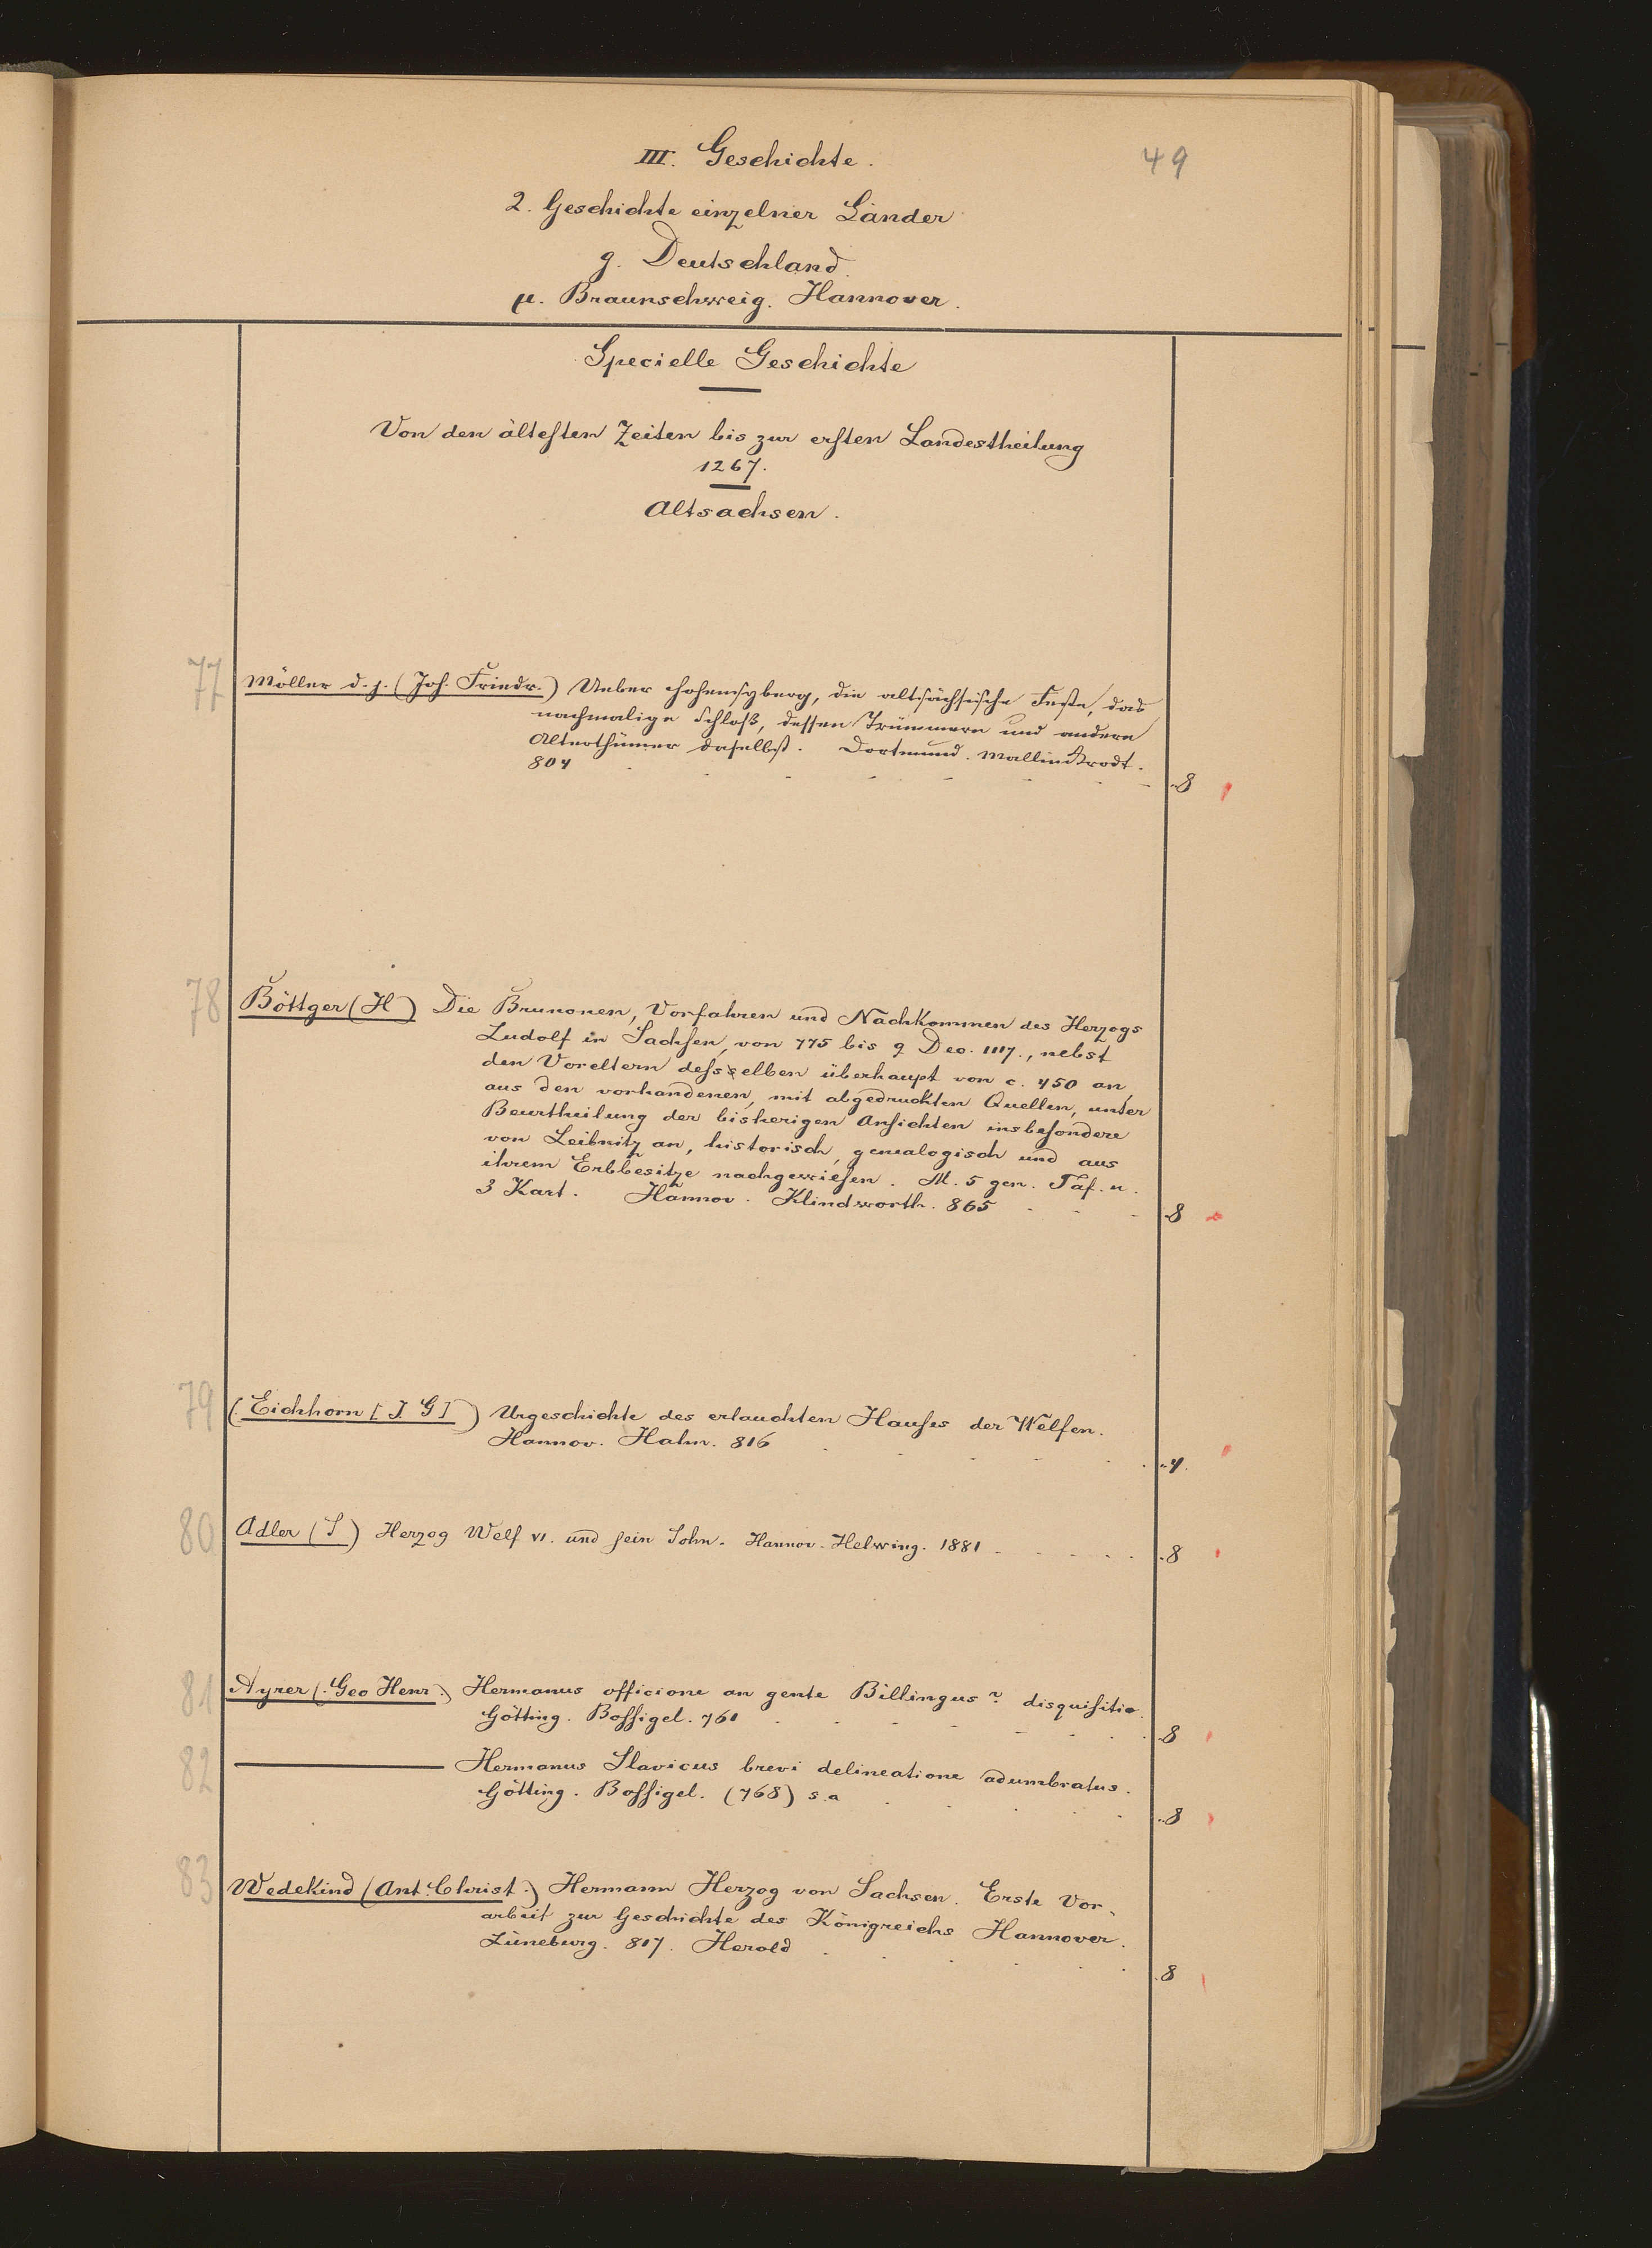 49
III. Geschichte.
2. Geschichte einzelner Länder
g. Deutschland.
μ. Braunschweig. Hannover.
Specielle Geschichte
Von den ältesten Zeiten bis zur ersten Landestheilung
1267.
Altsachsen.
77 Möller d. j. (Joh. Friedr.) Ueber Hohensyberg, die altsächsische Feste, das
nachmalige Schloß, dessen Trümmern und andere
Alterthümer daselbst. Dortmund. Mallinckrodt.
804 8
78 Böttger (H) Die Brunonen, Vorfahren und Nachkommen des Herzogs
Ludolf in Sachsen, von 775 bis 9 Dec. 1117., nebst
den Voreltern desselben überhaupt von c. 450 an,
aus den vorhandenen, mit abgedruckten Quellen, unter
Beurtheilung der bisherigen Ansichten insbesondere
von Leibnitz an, historisch, genealogisch und aus
ihrem Erbbesitze nachgewiesen. M. 5 gen. Taf. u.
3 Kart. Hannov. Klindworth. 865 8
79 (Eichhorn [J. G]) Urgeschichte des erlauchten Hauses der Welfen.
Hannov. Hahn. 816 4.
80 Adler (S) Herzog Welf VI. und sein Sohn. Hannov. Helwing. 1881 8
81 Ayrer (Geo Henr.) Hermanus officione an gente Billingus? disquisitio.
Götting. Bossigel. 761 8
82 ——— Hermanus Slavicus brevi delineatione adumbratus.
Götting. Bossigel. (768) s. a 8
83 Wedekind (Ant. Christ.) Hermann Herzog von Sachsen. Erste Vor-
arbeit zur Geschichte des Königreichs Hannover.
Lüneburg. 817. Herold 8